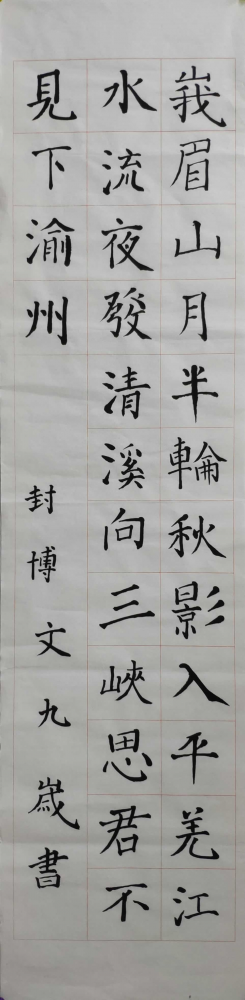 峩眉山月半輪秋影入平羌江
水流夜發清溪向三峽思君不
見下渝州
封博文九歲書